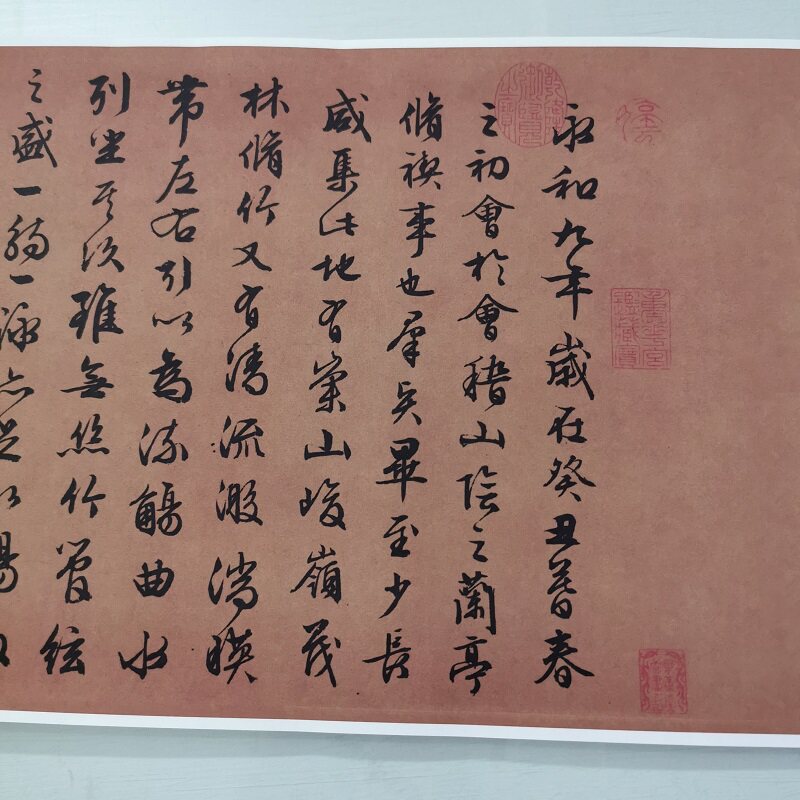 永和九年歲在癸丑暮春
之初會於會稽山陰之蘭亭
脩禊事也羣賢畢至少長
咸集此地有崇山峻嶺茂
林脩竹又有清流激湍暎
帶左右引以為流觴曲水
列坐其次雖無絲竹管絃
之盛一觴一詠亦足以暢
重華宮鑑藏寶
乾隆御覽之寶